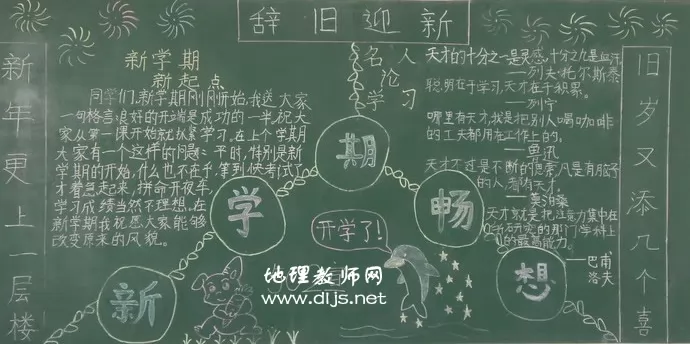 辞旧迎新
新年更上一层楼
旧岁又添几个喜
新学期
新起点
同学们,新学期刚刚开始,我送大家
一句格言:良好的开端是成功的一半,祝大
家从第一课开始就抓紧学习,在上个学期
大家有一个这样的问题:平时,特别是新
学期的开始,什么也不在乎,等到快考试了
才着急起来,拼命开夜车,
学习成绩当然不理想,在
新学期我祝愿大家能够
改变原来的风貌。
名人
论
学习
天才的十分之一是灵感,十分之九是血汗
——列夫·托尔斯泰
聪明在于学习,天才在于积累。
——列宁
哪里有天才,我是把别人喝咖啡
的工夫都用在工作上的。
——鲁迅
天才不过是不断的思索,凡是有脑子
的人,都有天才。
——莫泊桑
天才就是把注意力集中在
研究的那门学科上
的最高能力。
——巴甫
洛夫
新学期畅想
开学了!
地理教师网
www.dljs.net